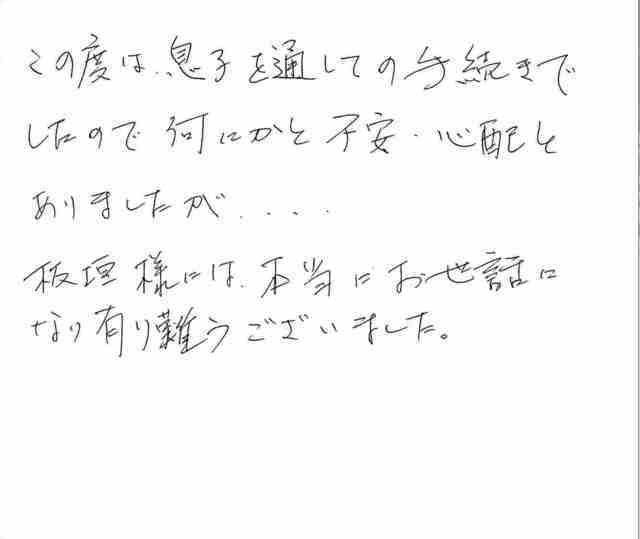 この度は、息子を通しての手続きで
したので何にかと不安・心配と
ありましたが....
板垣様には、本当にお世話に
なり有り難うございました。